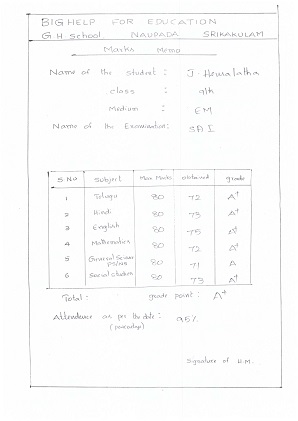 BIG HELP FOR EDUCATION
G.H. School NAUPADA SRIKAKULAM
Marks Memo
Name of the Student : J. Hemalatha
class : 9th
Medium : EM
Name of the Examination: SA I
S.No Subject Max Marks obtained grade
1 Telugu 80 72 A+
2 Hindi 80 73 A+
3 English 80 75 A+
4 Mathematics 80 72 A+
5 General Science PS/NS 80 71 A
6 Social studies 80 73 A+
Total: grade point : A+
Attendence as per the date : 95%
Signature of H.M.